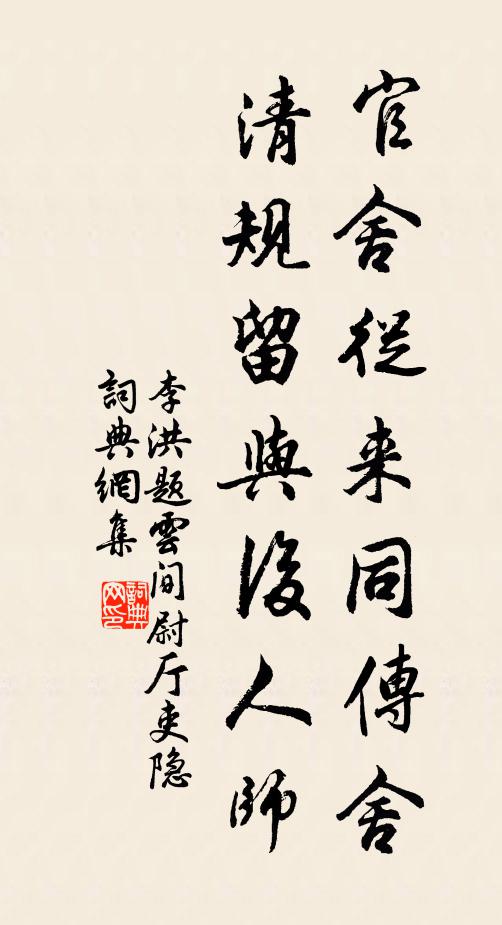 官舍從来同傳舍
清規留與後人師
李洪题雲间尉厅吏隐
詞典網集
詞典网印